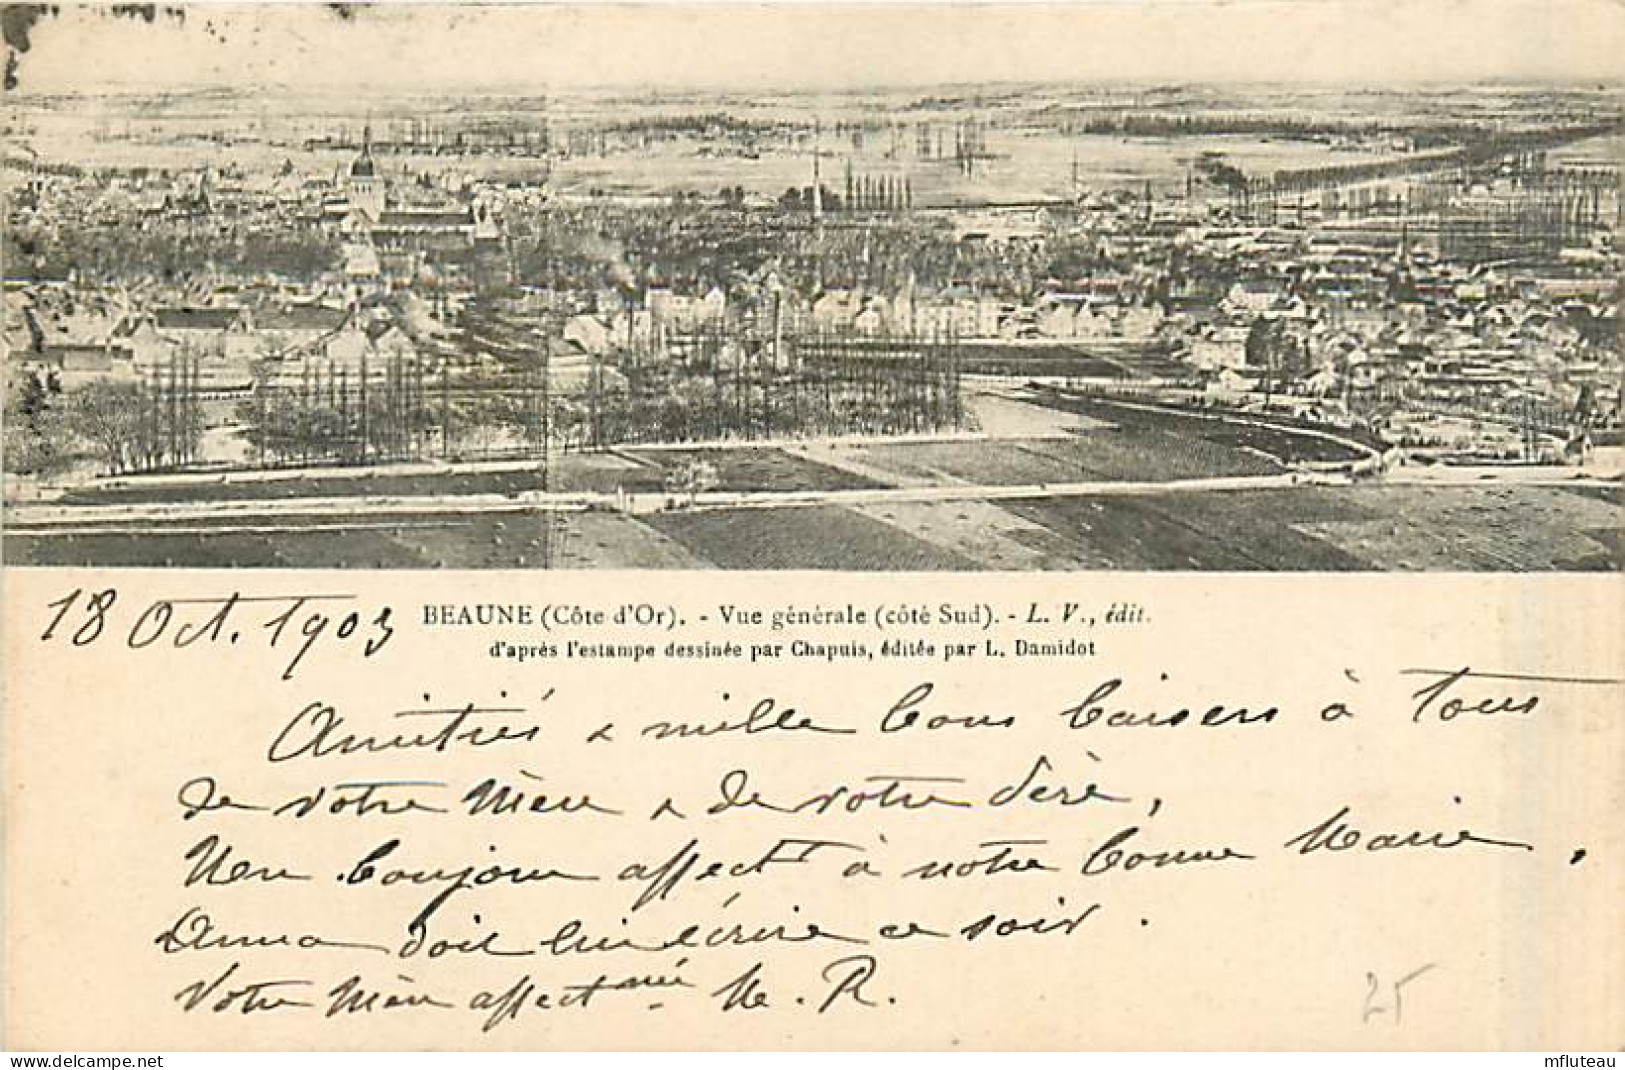 18 Oct. 1903
BEAUNE (Côte d'Or). - Vue générale (côté Sud). - L. V., édit.
d'après l'estampe dessinée par Chapuis, éditée par L. Damidot
Amitiés & mille bons baisers à tous
de votre Mère & de votre Père,
Un bonjour affect à notre bonne Marie,
Anna doit lui écrire ce soir.
Votre Mère affectnée M. R.
25
www.delcampe.net
mfluteau